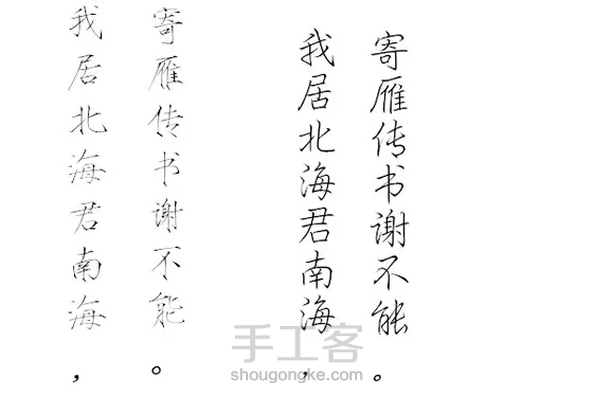 我居北海君南海，
寄雁传书谢不能。
我居北海君南海，
寄雁传书谢不能。
手工客
shougongke.com